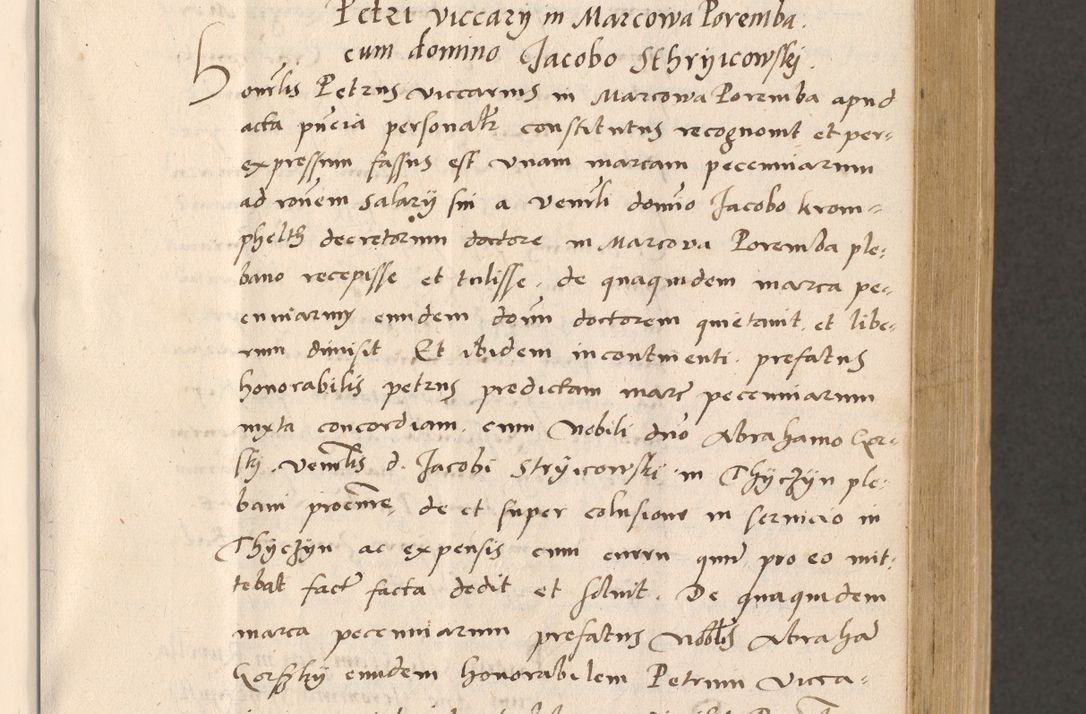 Petri viccarÿ in Marcowa Poremba.
cum domino Jacobo Sthryicowskÿ.
Honrlis Petrus viccarius in Marcowa Poremba apud
acta pñcia personalr constitutus recognovit et per-
expressum fassus est unam marcam pecunniarum
ad ronem salarÿ sui a venrli domno Jacobo krom-
phelth decretorum doctore in Marcova Poremba ple-
bano recepisse et tulisse. de quaquidem marca pe-
cuniarum eundem domn doctorem quietavit. et libe-
rum dimisit Et ibidem incontinenti. prefatus
honorabilis petrus predictam marc pecunniarum
iuxta concordiam. cum Nobili dno Abrahamo Gor-
skÿ. venrlis d. Jacobi Strÿicowskÿ in Thÿczÿn ple-
bani de et super colusione in servicio in
Thÿczÿn ac expensis cum curru quem pro eo mit-
tebat fact facta dedit et solvit. De quaquidem
marca pecunniarum prefatus Nobilis Abraham
Gorsskÿ eundem honorabilem Petrum vicca-